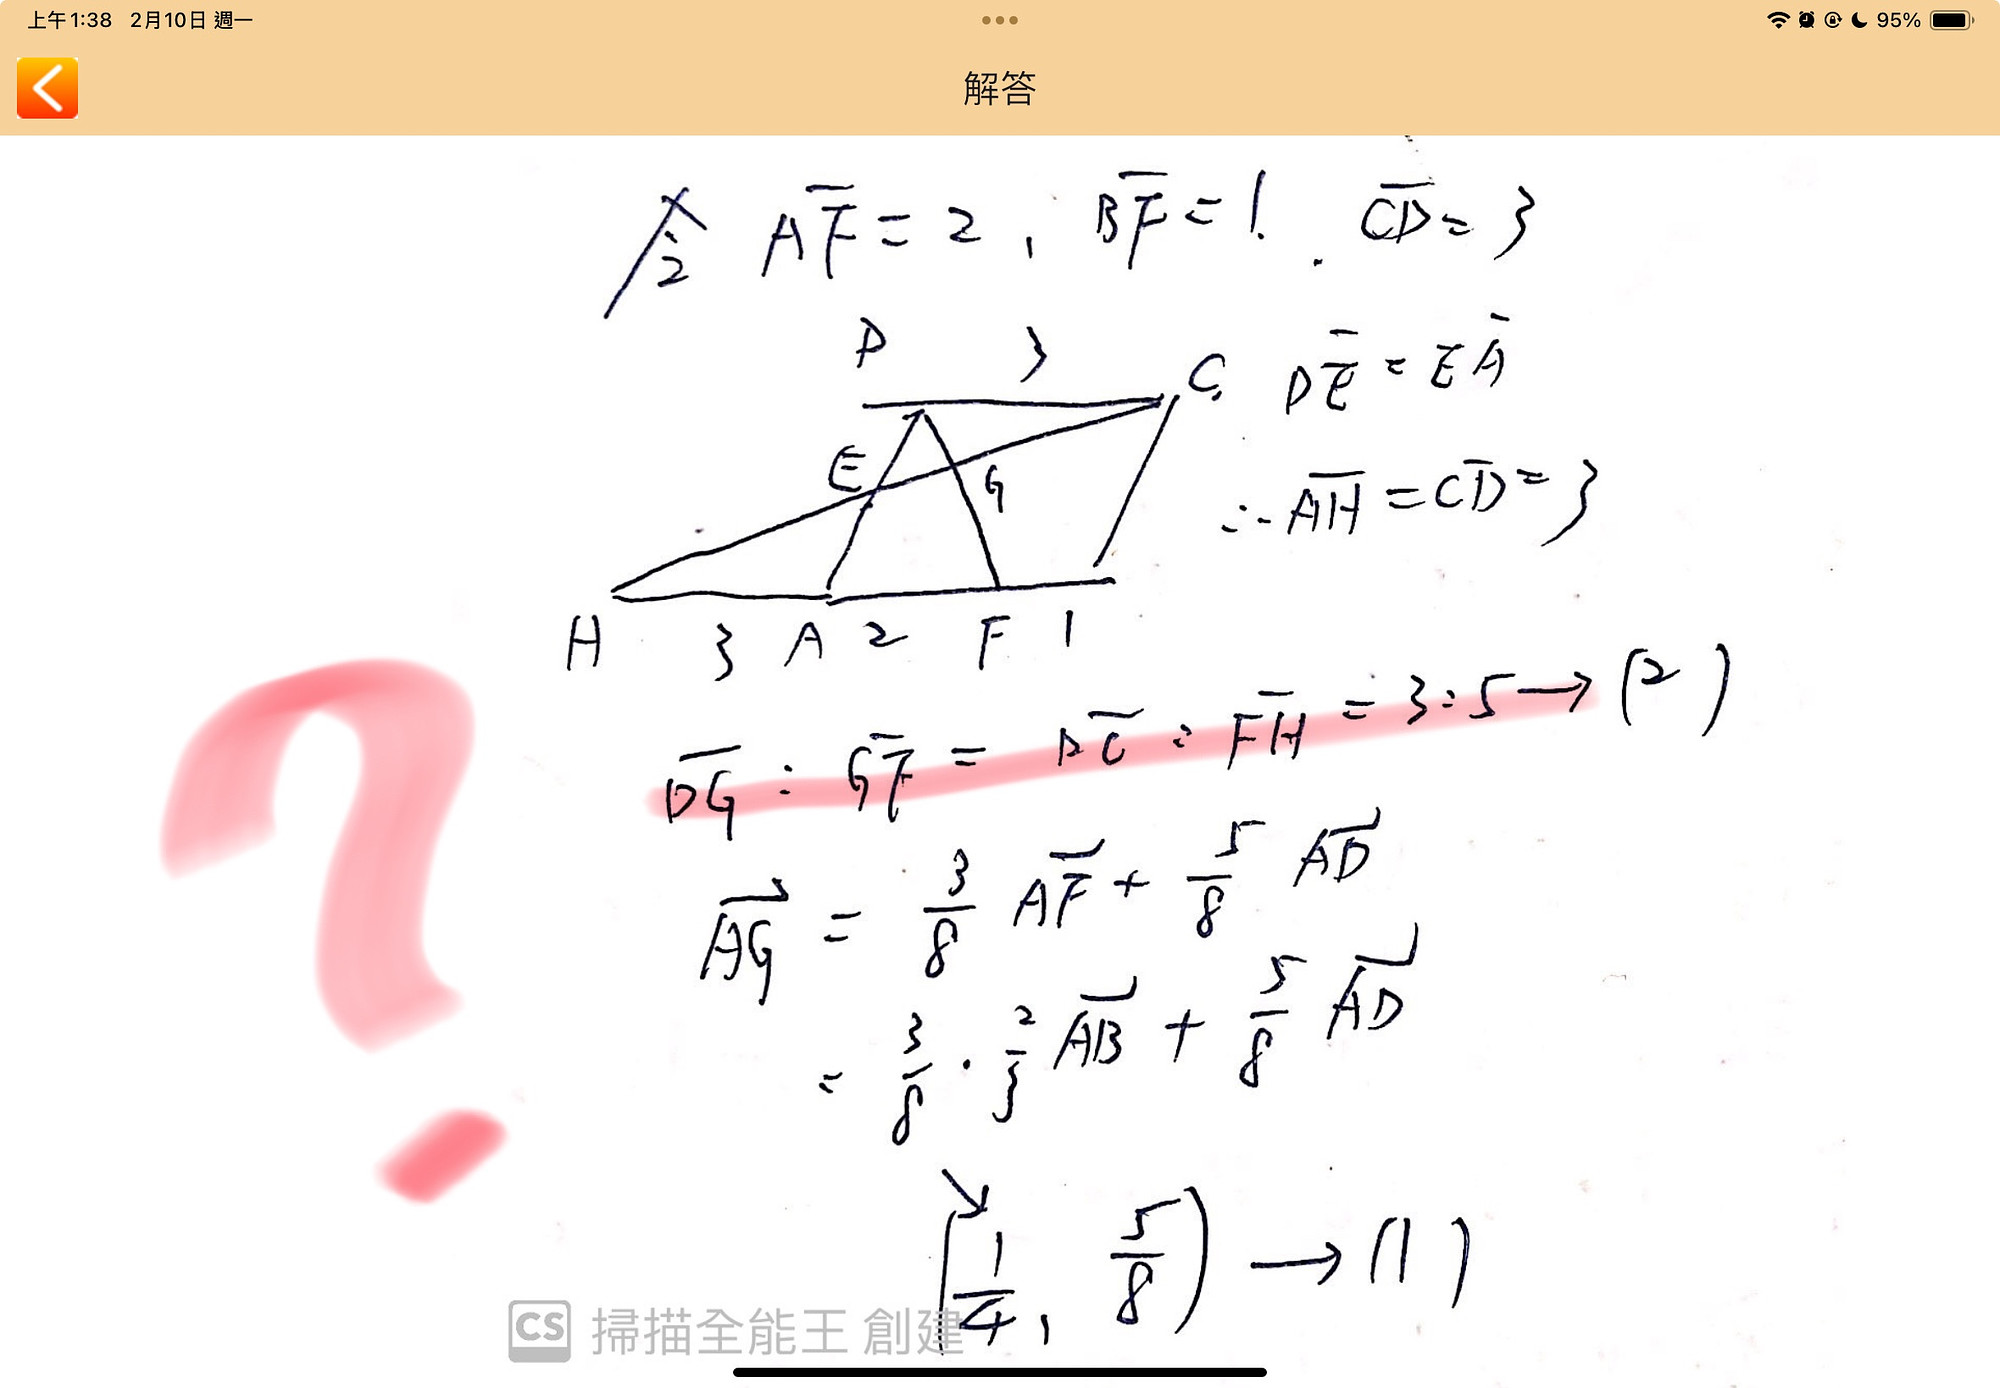 上午1:38 2月10日 週一
95%
解答
令 A͞F = 2 , B͞F = 1 . C͞D = 3
D 3 C
D͞E = E͞A
E G
∴ A͞H = C͞D = 3
H 3 A 2 F 1
D͞G : G͞F = D͞C : F͞H = 3:5 → (2)
AG⃗ = 3/8 AF⃗ + 5/8 AD⃗
= 3/8 · 2/3 AB⃗ + 5/8 AD⃗
(1/4 , 5/8) → (1)
CS 掃描全能王 創建
?